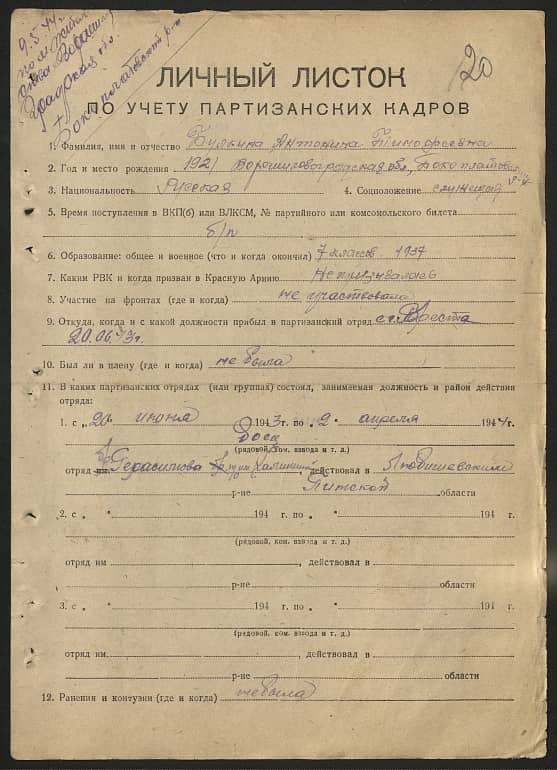 9.5.44г.
20
ЛИЧНЫЙ ЛИСТОК
ПО УЧЕТУ ПАРТИЗАНСКИХ КАДРОВ
1. Фамилия, имя и отчество Булкина Антонина Тимофеевна
2. Год и место рождения 1921 Ворошиловоградская обл.,
3. Национальность Русская 4. Соцположение служащий
5. Время поступления в ВКП(б) или ВЛКСМ, № партийного или комсомольского билета
б/п
6. Образование: общее и военное (что и когда окончил) 7 классов 1937
7. Каким РВК и когда призван в Красную Армию Не призывалась
8. Участие на фронтах (где и когда) не участвовала
9. Откуда, когда и с какой должности прибыл в партизанский отряд с г. Бреста
20.06.43г.
10. Был ли в плену (где и когда) не была
11. В каких партизанских отрядах (или группах) состоял, занимаемая должность и район действия
отряда:
1. с „20“ июня 1943г. по „2“ апреля 1944г.
Боец
(рядовой, ком. взвода и т. д.)
отряд им. Герасимова действовал в Любишевском
р-не Пинской области
2. с „ “ 194 г. по „ “ 194 г.
(рядовой, ком. взвода и т. д.)
отряд им , действовал в
р-не области
3. с „ “ 194 г. по „ “ 194 г.
(рядовой, ком. взвода и т. д.)
отряд им , действовал в
р-не области
12. Ранения и контузии (где и когда) не была